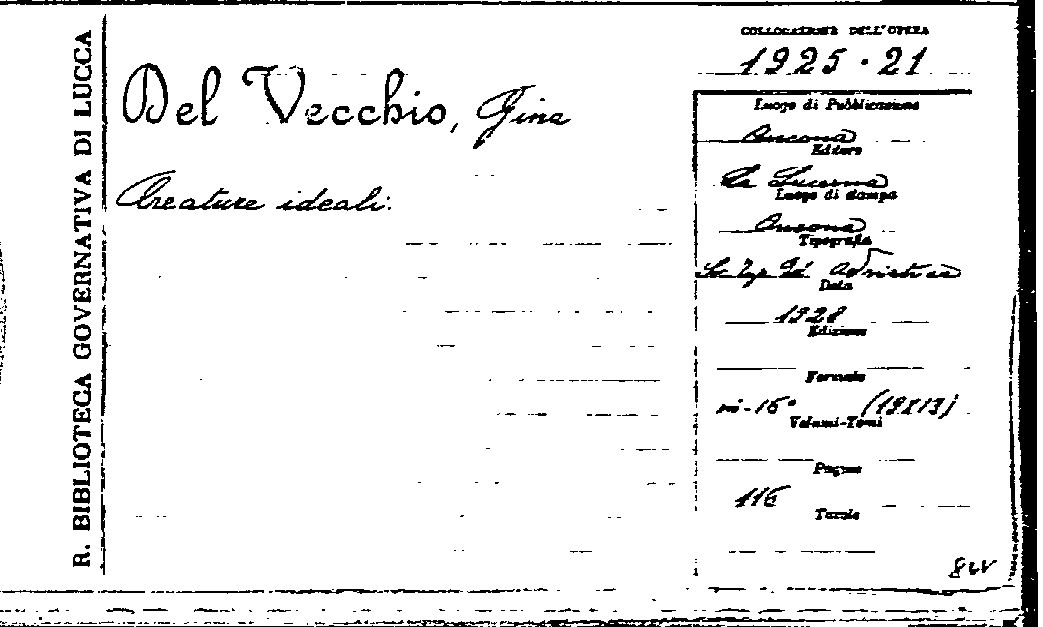 R. BIBLIOTECA GOVERNATIVA DI LUCCA
Del Vecchio, Gina
Creature ideali:
COLLOCAZIONE DELL'OPERA
1925 · 21
Luogo di Pubblicazione
Ancona
Editore
La Lucerna
Luogo di stampa
Ancona
Tipografia
Adriatica
Data
1928
Edizione
Formato
in-16° (19x13)
Volumi-Tomi
Pagine
116
Tavole